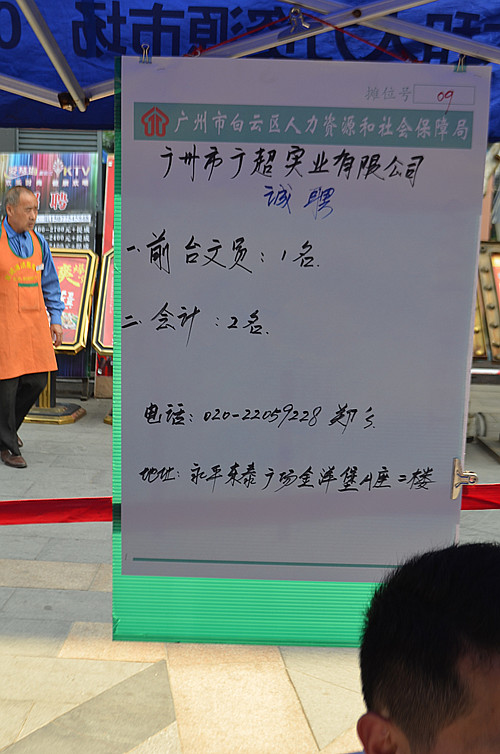 和人力资源市场
摊位号 09
广州市白云区人力资源和社会保障局
广州市广超实业有限公司
诚聘
一.前台文员：1名.
二.会计：2名.
电话：020-22059228 郑
地址：永平东泰广场金洋堡A座二楼
KTV
聘